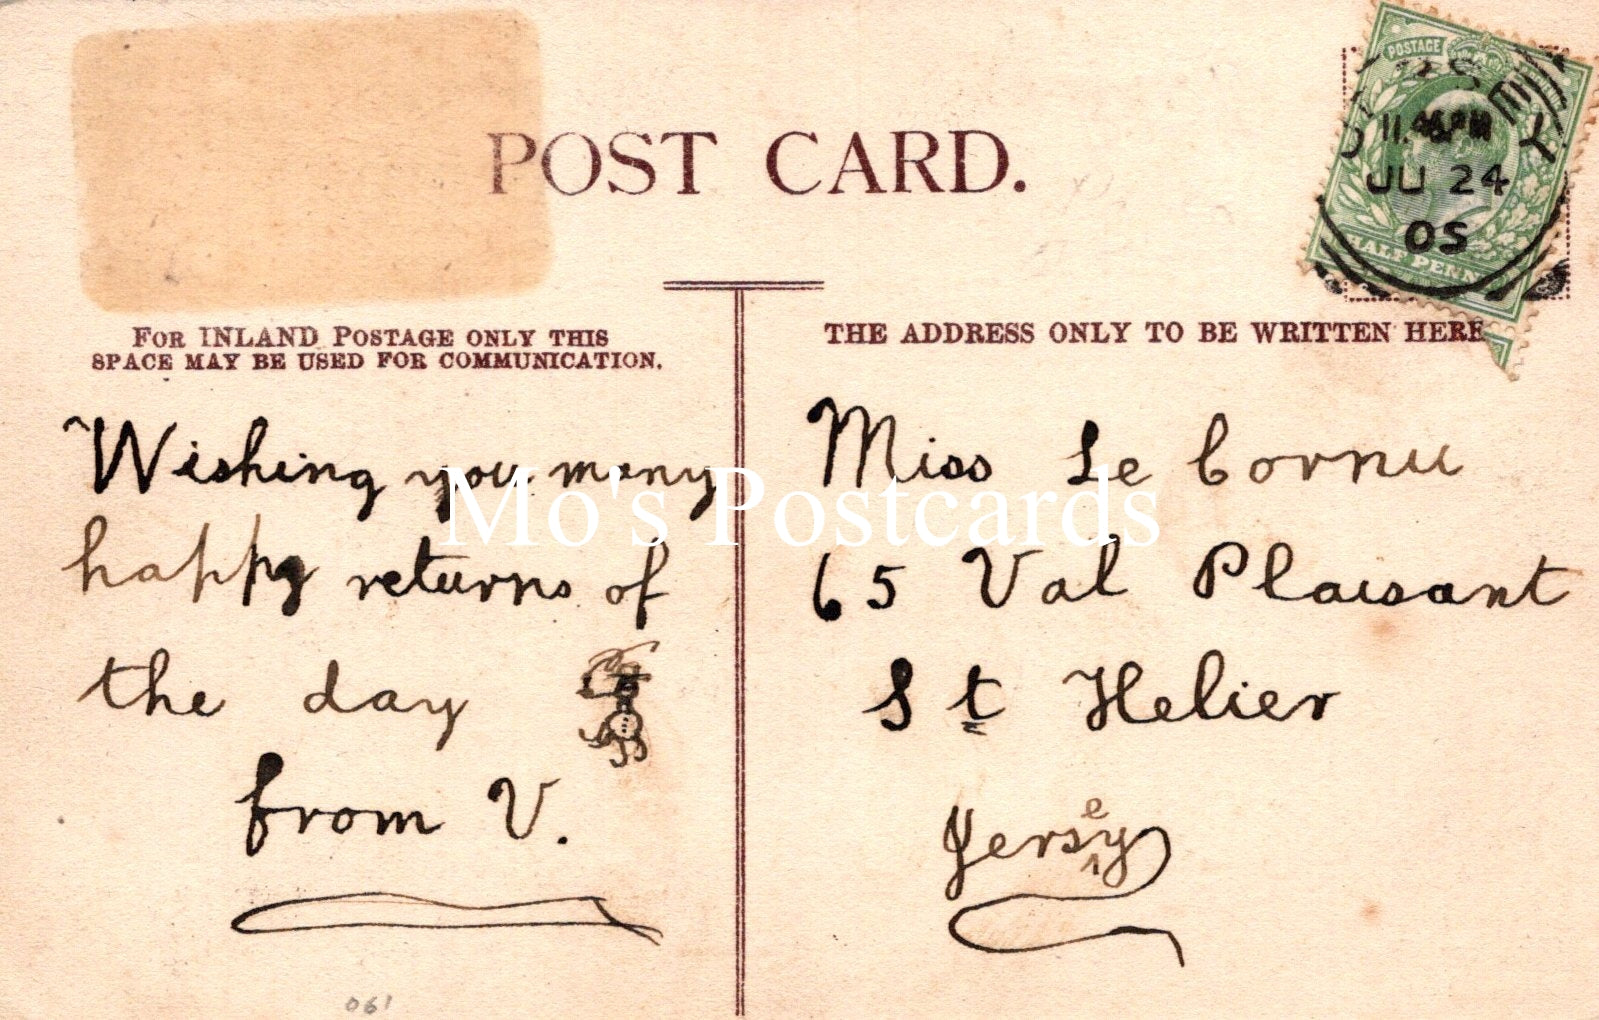 POST CARD.
POSTAGE
JERSEY
11.45PM
JU 24
05
HALF PENN
FOR INLAND POSTAGE ONLY THIS
SPACE MAY BE USED FOR COMMUNICATION.
THE ADDRESS ONLY TO BE WRITTEN HERE
Wishing you many
happy returns of
the day
from V.
Miss Le Cornu
65 Val Plaisant
St Helier
Jersey
Mo's Postcards
061